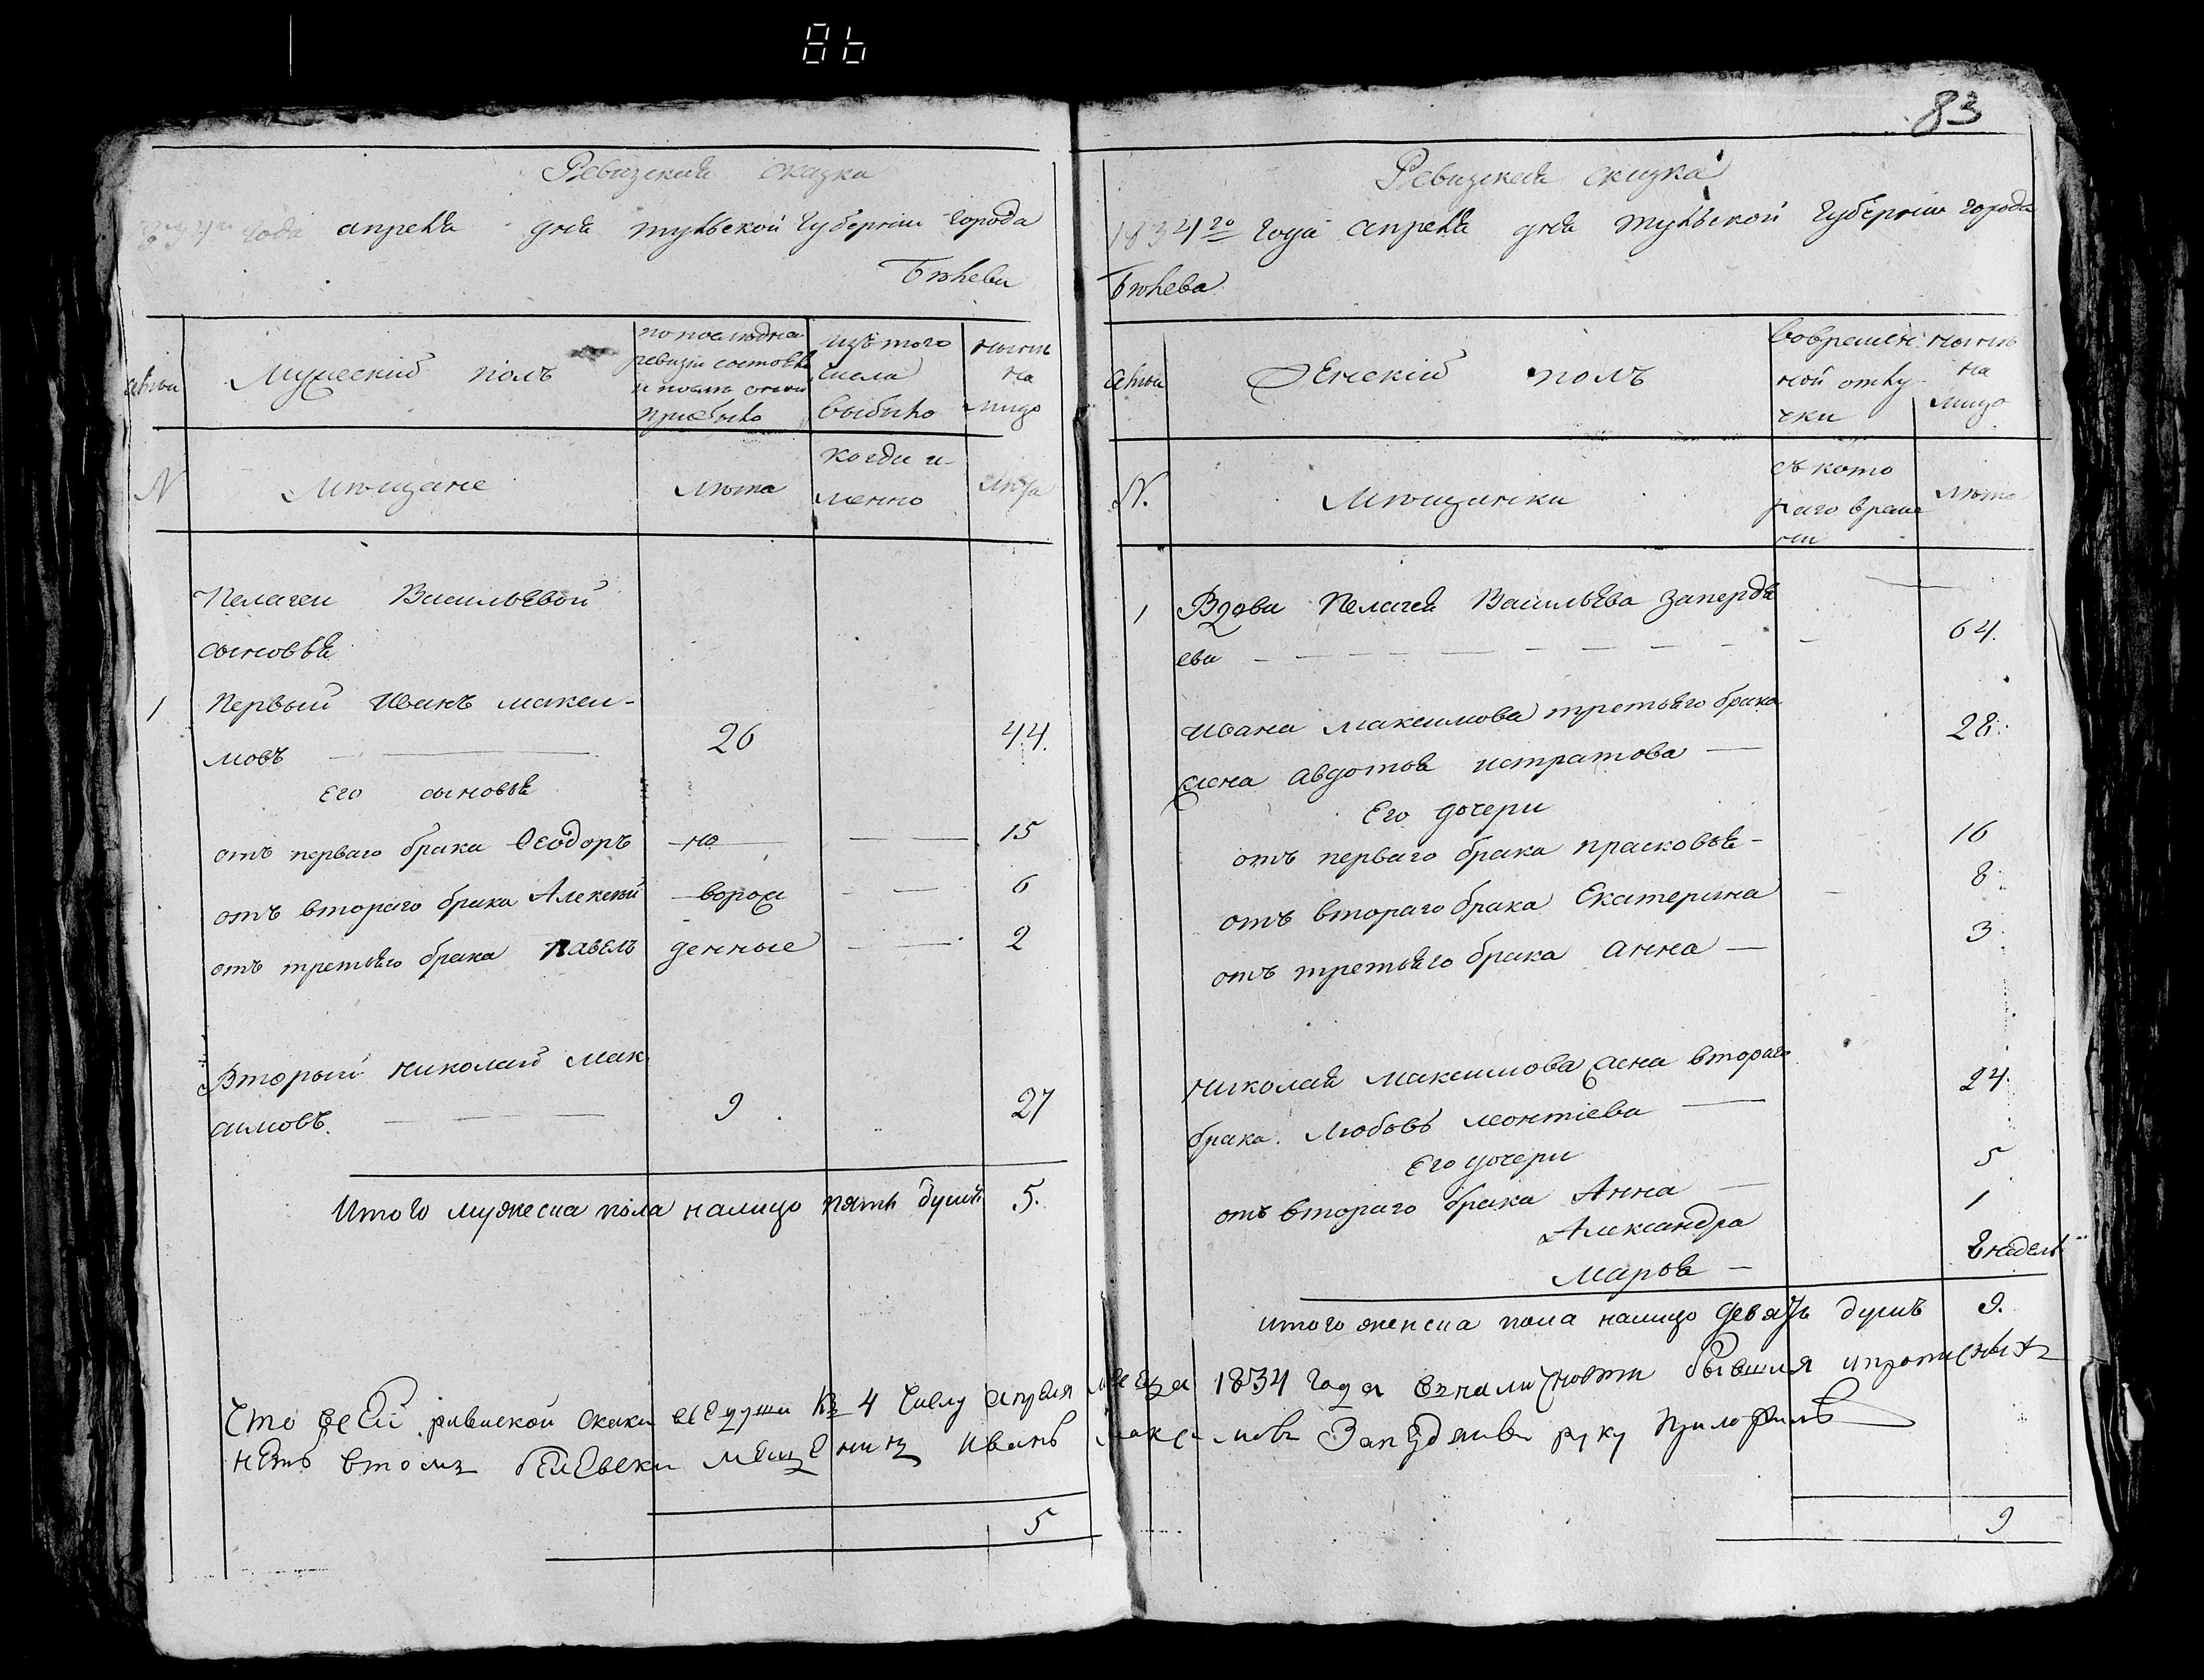 86
83
Ревизская сказка
1834го года апреля дня тульской губернии города
Белева
семьи
Мужеский полъ
по последней
ревизіи состояло
и после оной
прибыло
изъ того
числа
выбыло
ныне
на
лицо
N
Мещане
лета
когда и-
менно
лета
Пелагеи Васильевой
сыновья
1 Первый Иванъ макси-
мовъ 26 44.
Его сыновья
отъ перваго брака Феодоръ -но 15
отъ втораго брака Алексей -ворож 6
отъ третьяго брака Павелъ денные 2
Вторый николай Мак
симовъ. 9 27
Итого мужеска пола налицо пять душъ 5.
Ревизская сказка
1834го года апреля дня тульской губерніи города
Белева
семьи
Женскій полъ
вовремен
ной отлу-
чки
ныне
на
лицо
N.
Мещанки
съ кото
раго време
ни
лета
1 Вдова Пелагея Васильева Запердя
ева 64.
ивана максимова третьяго брака
жена авдотья истратова 28.
Его дочери
отъ перваго брака прасковья 16
отъ втораго брака Екатерина 8
отъ третьяго брака анна 3
николая максимова жена втораго
брака. Любовь леонтіева 24.
Его дочери
отъ втораго брака Анна 5
Александра 1
Марья недель
итого женска пола налицо девять душъ 9.
Что всей ривиской скаки все души къ 4 числу апреля месеца 1834 года внали бывшия
нетъ втомъ белевски мещенинъ иванъ максимовъ руку приложилъ
5
9